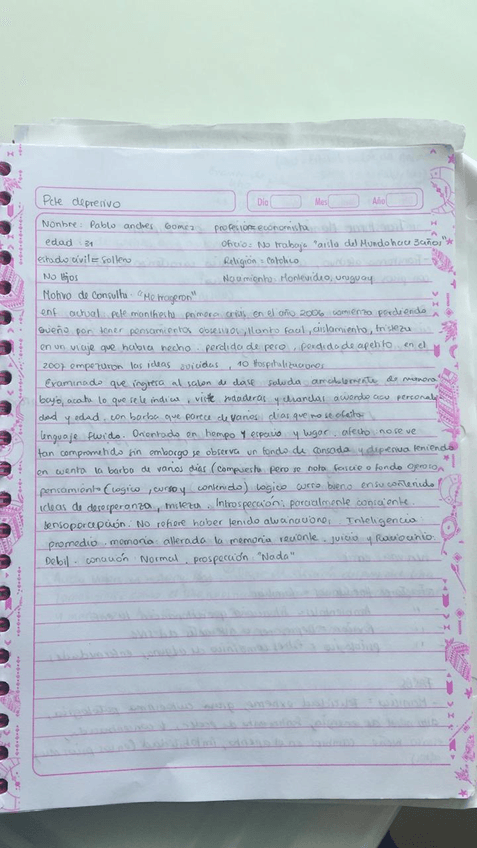 Pcte depresivo
Dia Mes Año
Nonbre: Pablo andres Gomez profesion= economista
edad 31 Oficio: No trabaja "aisla del Mundo hace 3 años"
estado civil = Soltero Religion = Catolico
No Hijos Nacimiento: Montevideo, uruguay
Motivo de Consulta: "Me trageron"
enf actual pcte manifiesta primera crisis en el año 2006 comienza perdiendo
sueño por tener pensamientos obsesivos, llanto facil, aislamiento, tristeza
en un viaje que habia hecho. perdida de peso, perdida de apetito. en el
2007 empezaron las ideas suicidas, 10 Hospitalizaciones
Examinado que ingresa al salon de clase saluda amablemente de manera
bajo, acata lo que se le indica, viste sudaderas y chanclas acuerdo a su personali
dad y edad, con barba que parece de varios dias que no se afeita
lenguaje fluido. Orientado en tiempo y espacio y lugar, afecto: no se ve
tan comprometido sin embargo se observa un fondo de cansado y depresivo teniendo
en cuenta la barba de varios dias (compuesto pero se nota fondo
pensamiento (logico, curso y contenido) logico curso bueno en su contenido
ideas de desesperanza, tristeza. Introspección: parcialmente consciente.
Sensopercepción: No refiere haber tenido alucinaciones. Inteligencia
promedio. memoria: alterada la memoria reciente. juicio y Raciocinio.
Debil. conación Normal, prospección "Nada"